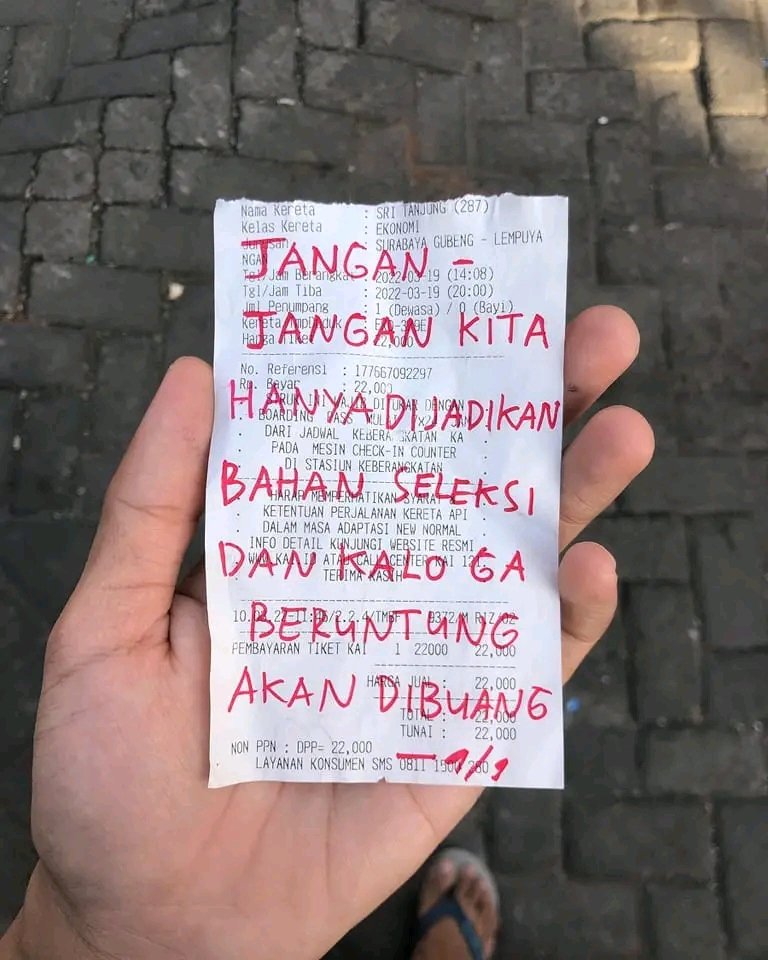 Nama Kereta : SRI TANJUNG (287)
Kelas Kereta : EKONOMI
: SURABAYA GUBENG - LEMPUYA
NGAN
JANGAN -
Tgl/Jam Berangkat : 2022-03-19 (14:08)
Tgl/Jam Tiba : 2022-03-19 (20:00)
Jml Penumpang : 1 (Dewasa) / 0 (Bayi)
JANGAN KITA
Harga Tiket : 22,000
No. Referensi : 177667092297
Rp. Bayar : 22,000
HANYA DIJADIKAN
BOARDING PASS MULAI
DARI JADWAL KEBERANGKATAN KA
PADA MESIN CHECK-IN COUNTER
DI STASIUN KEBERANGKATAN
BAHAN SELEKSI
HARAP MEMPERHATIKAN SYARAT &
KETENTUAN PERJALANAN KERETA API
DALAM MASA ADAPTASI NEW NORMAL
INFO DETAIL KUNJUNGI WEBSITE RESMI
DAN KALO GA
TERIMA KASIH
BERUNTUNG
PEMBAYARAN TIKET KAI 1 22000 22,000
AKAN DIBUANG
HARGA JUAL : 22,000
TOTAL : 22,000
TUNAI : 22,000
NON PPN : DPP= 22,000
LAYANAN KONSUMEN SMS 0811 1500 280